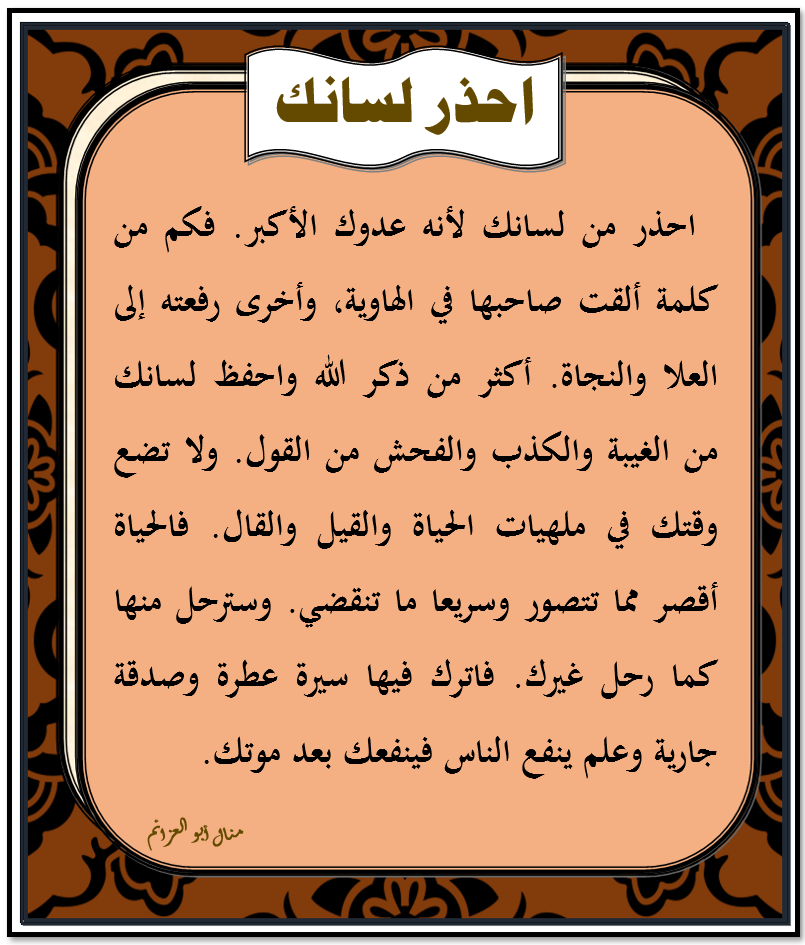 احذر لسانك
احذر من لسانك لأنه عدوك الأكبر. فكم من
كلمة ألقت صاحبها في الهاوية، وأخرى رفعته إلى
العلا والنجاة. أكثر من ذكر الله واحفظ لسانك
من الغيبة والكذب والفحش من القول. ولا تضع
وقتك في ملهيات الحياة والقيل والقال. فالحياة
أقصر مما تتصور وسريعا ما تنقضي. وسترحل منها
كما رحل غيرك. فاترك فيها سيرة عطرة وصدقة
جارية وعلم ينفع الناس فينفعك بعد موتك.
منال أبو العزائم